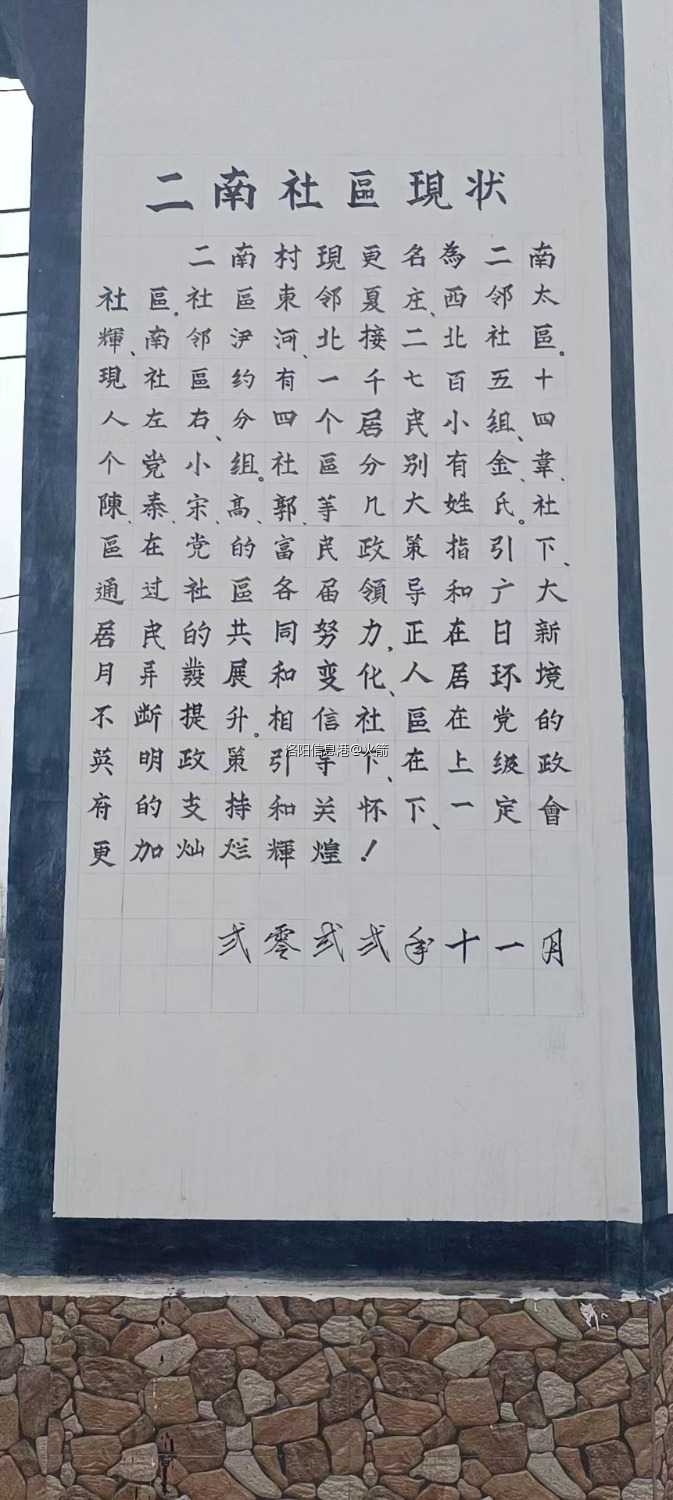 二南社區現状
二南村現更名為二南
社區。社區東邻夏庄、西邻太
輝、南邻伊河、北接二北社區。
現社區约有一千七百五十
人左右、分四个居民小組、四
个党小組。社區分别有金、韋、
陳、泰、宋、高、郭、等几大姓氏。社
區在党的富民政策指引下、
通过社區各届領导和广大
居民的共同努力,正在日新
月异的發展和变化、人居环境
不断提升。相信社區在党的
英明政策引导下、在上级政
府的支持和关怀下、一定會
更加灿烂輝煌！
弍零弍弍年十一月
洛阳信息港@火箭